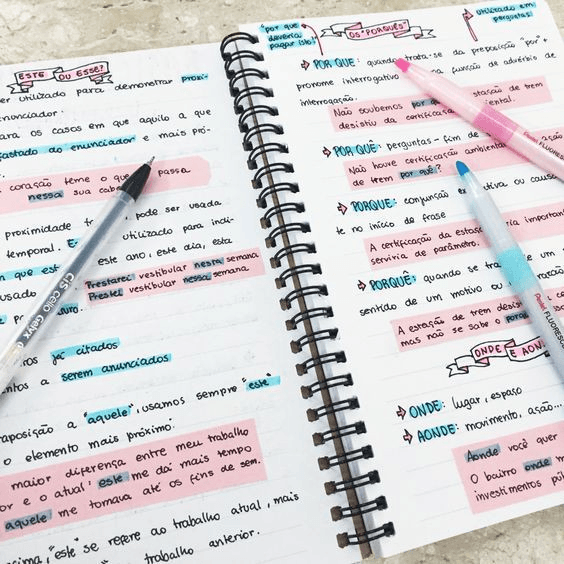 ESTE OU ESSE?
ser utilizado para demonstrar proxi-
enunciador.
ara os casos em que aquilo a que
fastado do enunciador e mais pró-
coração teme o que passa
nessa sua cabeça
proximidade, pode ser usada
temporal. utilizado para indi-
este ano, este dia, esta
que est
usado
Prestarei vestibular nesta semana
Prestei vestibular nessa semana
uturo.
já citados
ntos a serem anunciados
aposição a "aquele", usamos sempre "este"
o elemento mais próximo.
maior diferença entre meu trabalho
or e o atual: este me dá mais tempo
aquele me tomava até os fins de sem.
cima, "este" se refere ao trabalho atual, mais
trabalho anterior.
"por que deveria pagar isto?"
OS "PORQUÊS"
utilizado em perguntas
POR QUE: quando trata-se da preposição "por" +
pronome interrogativo na função de advérbio de
interrogação.
Não soubemos por q estação de trem
desistiu da certificação ambiental.
POR QUÊ: perguntas - fim de ação
Não houve certificação ambiental
de trem por quê?
PORQUE: conjunção ou causa
te no início de frase
A certificação da estação importante
serviria de parâmetro.
PORQUÊ: quando se trata
sentido de um motivo ou
A estação de trem desis
mas não se sabe o porqu
ONDE E AONDE
ONDE: lugar, espaço
AONDE: movimento, ação...
Aonde você quer
O bairro onde m
investimentos púb
CIS cello Gelyx
Pentel FLUORESCE
Pentel FLUORESCE